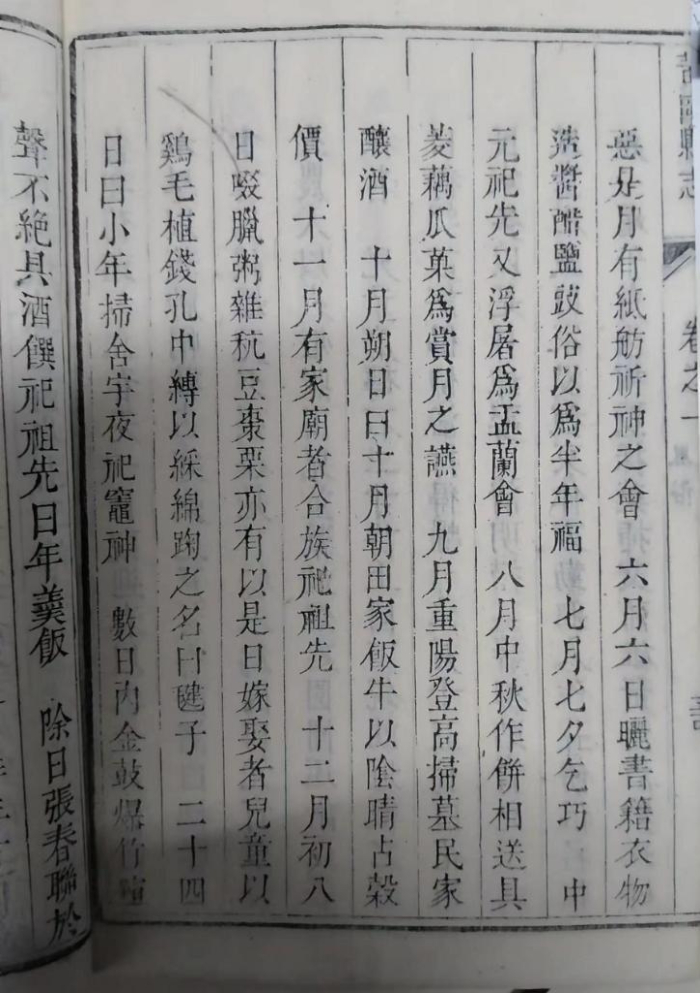 縣志
卷之一
惡是月有紙舫祈神之會　六月六日曬書籍衣物
造醬醋鹽豉俗以爲半年福　七月七夕乞巧　中
元祀先又浮屠爲盂蘭會　八月中秋作餅相送具
菱藕瓜菓爲賞月之讌　九月重陽登高掃墓民家
釀酒　十月朔日曰十月朝田家飯牛以陰晴占穀
價　十一月有家廟者合族祀祖先　十二月初八
日啜臘粥雜秔豆棗栗亦有以是日嫁娶者兒童以
鷄毛植錢孔中縛以綵綿踘之名曰毽子　二十四
日曰小年掃舍宇夜祀竈神　數日内金鼓爆竹喧
聲不絶具酒饌祀祖先曰年羹飯　除日張春聯於